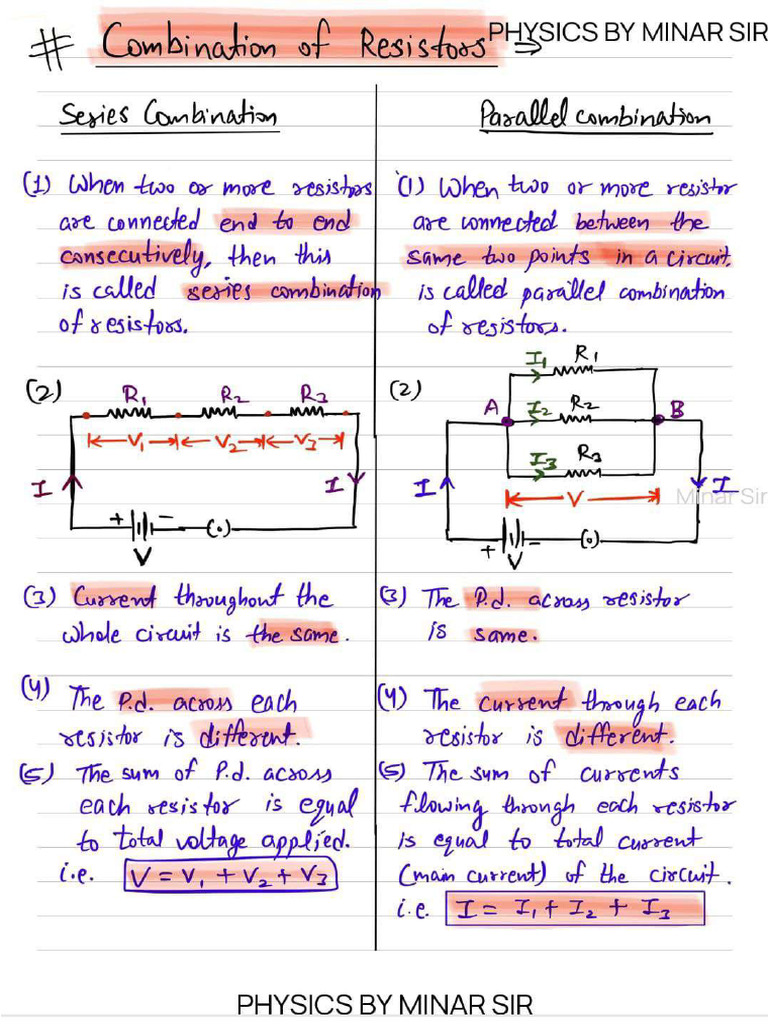 PHYSICS BY MINAR SIR
# Combination of Resistors ⇒
Series Combination
(1) When two or more resistors
are connected end to end
consecutively, then this
is called series combination
of resistors.
(2)
R1 R2 R3
V1 V2 V3
I I
+ -
V
(3) Current throughout the
whole circuit is the same.
(4) The P.d. across each
resistor is different.
(5) The sum of P.d. across
each resistor is equal
to total voltage applied.
i.e. V = V1 + V2 + V3
Parallel combination
(1) When two or more resistor
are connected between the
same two points in a circuit,
is called parallel combination
of resistors.
(2)
I1 R1
A I2 R2 B
I3 R3
I V I
Minar Sir
+ -
V
(3) The P.d. across resistor
is same.
(4) The current through each
resistor is different.
(5) The sum of currents
flowing through each resistor
is equal to total current
(main current) of the circuit.
i.e. I = I1 + I2 + I3
PHYSICS BY MINAR SIR